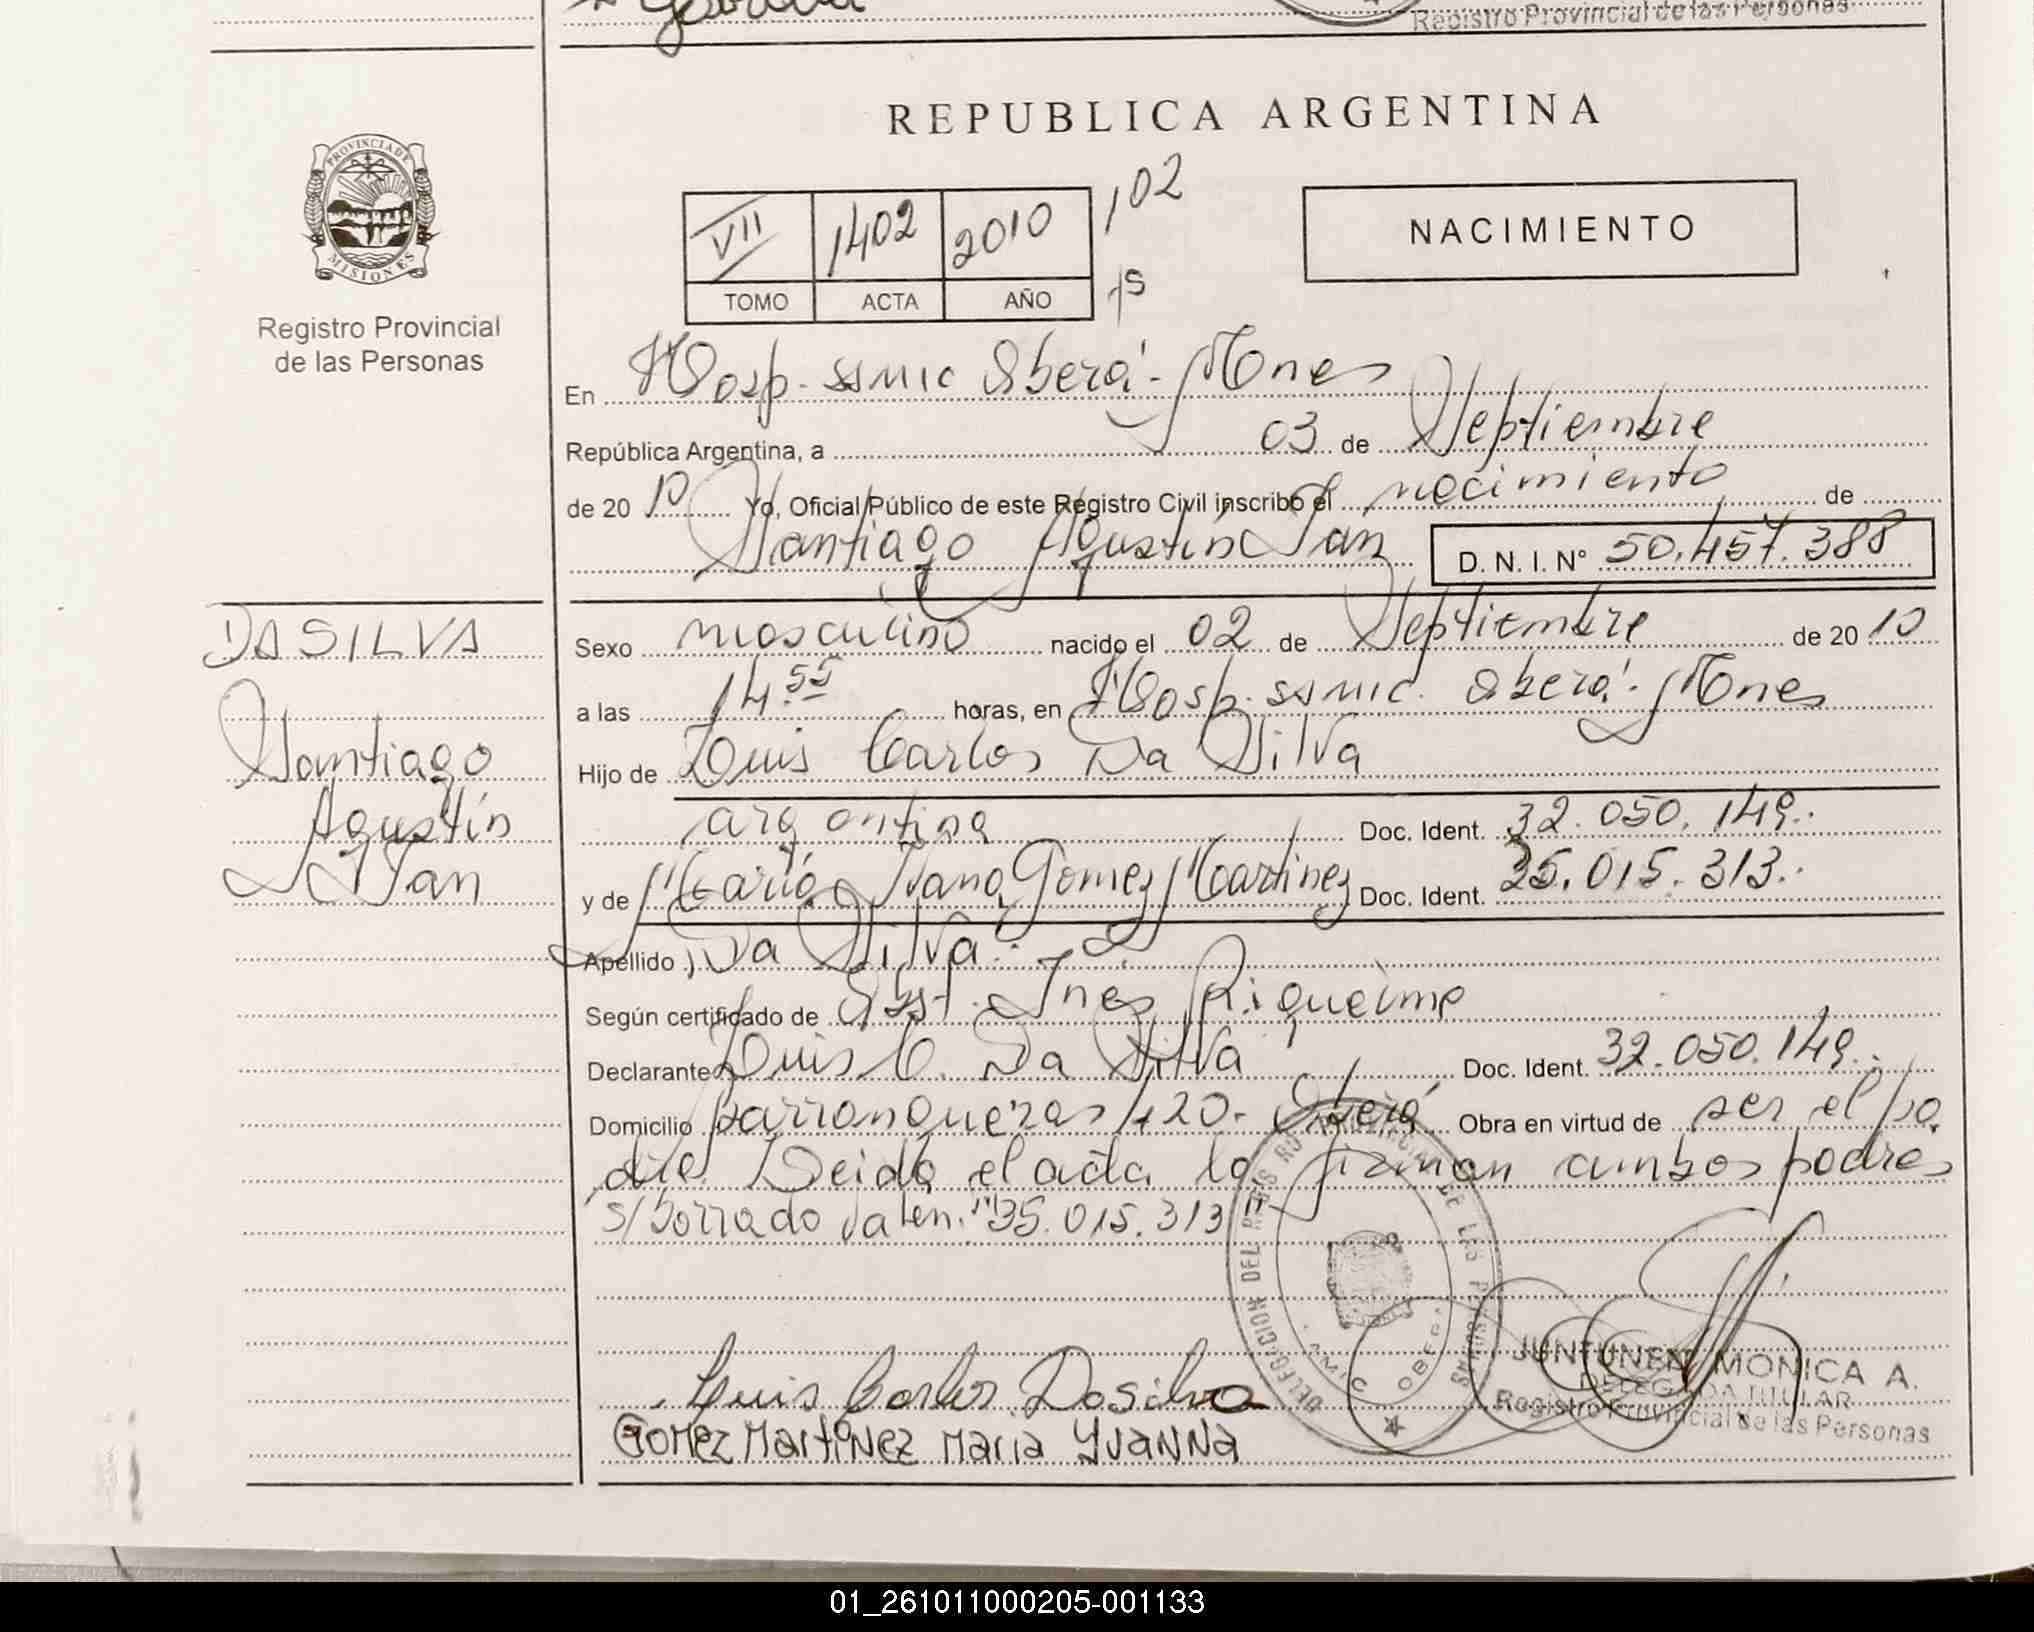 Registro Provincial de las Personas
REPUBLICA ARGENTINA
PROVINCIA DE
MISIONES
Registro Provincial
de las Personas
VII 1402 2010 102
TOMO ACTA AÑO
NACIMIENTO
En Hosp. SSMIC Oberá - Mnes
República Argentina, a 03 de Septiembre
de 20 10 Yo, Oficial Público de este Registro Civil inscribo el nacimiento de
Santiago Agustín Ian D. N. I. N° 50.457.388
DA SILVA
Santiago
Agustín
Ian
Sexo masculino nacido el 02 de Septiembre de 20 10
a las 14.55 horas, en Hosp. SSMIC. Oberá - Mnes
Hijo de Luis Carlos Da Silva
argentina Doc. Ident. 32.050.149.
y de María Ivana Gomez Martinez Doc. Ident. 35.015.313.
Apellido Da Silva.
Según certificado de Obst. Ines Riqueime
Declarante Luis C. Da Silva Doc. Ident. 32.050.149.
Domicilio Barranqueras 420 - Oberá Obra en virtud de ser el pa
dre. Leida el acta la firman ambos padres
s/borrado valen: "35.015.313"
DELEGACION DEL REGISTRO PROVINCIAL DE LAS PERSONAS
OBERA
Luis Carlos Dasilva
GOMEZ MartiNez Maria YvaNNa
JUNTUNEN MONICA A.
DELEGADA TITULAR
Registro Provincial de las Personas
01_261011000205-001133